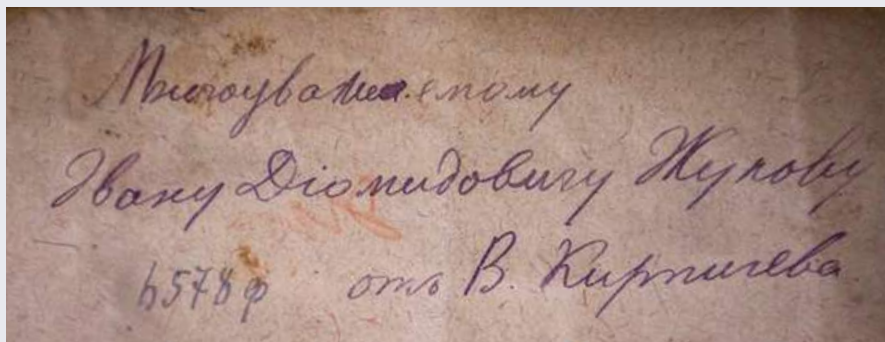 Многоуважаемому
Ивану Діомидовичу Жукову
6578ф отъ В. Кирпичева